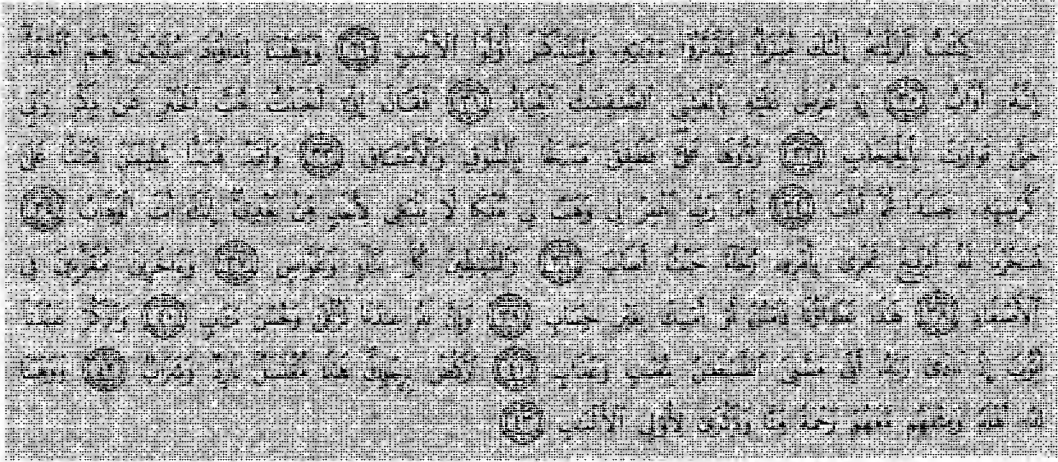 كِتَٰبٌ أَنزَلْنَٰهُ إِلَيْكَ مُبَٰرَكٌ لِّيَدَّبَّرُوٓا۟ ءَايَٰتِهِۦ وَلِيَتَذَكَّرَ أُو۟لُوا۟ ٱلْأَلْبَٰبِ ٢٩ وَوَهَبْنَا لِدَاوُۥدَ سُلَيْمَٰنَ نِعْمَ ٱلْعَبْدُ
إِنَّهُۥٓ أَوَّابٌ ٣٠ إِذْ عُرِضَ عَلَيْهِ بِٱلْعَشِىِّ ٱلصَّٰفِنَٰتُ ٱلْجِيَادُ ٣١ فَقَالَ إِنِّىٓ أَحْبَبْتُ حُبَّ ٱلْخَيْرِ عَن ذِكْرِ رَبِّى
حَتَّىٰ تَوَارَتْ بِٱلْحِجَابِ ٣٢ رُدُّوهَا عَلَىَّ فَطَفِقَ مَسْحًۢا بِٱلسُّوقِ وَٱلْأَعْنَاقِ ٣٣ وَلَقَدْ فَتَنَّا سُلَيْمَٰنَ وَأَلْقَيْنَا عَلَىٰ
كُرْسِيِّهِۦ جَسَدًا ثُمَّ أَنَابَ ٣٤ قَالَ رَبِّ ٱغْفِرْ لِى وَهَبْ لِى مُلْكًا لَّا يَنۢبَغِى لِأَحَدٍ مِّنۢ بَعْدِىٓ إِنَّكَ أَنتَ ٱلْوَهَّابُ ٣٥
فَسَخَّرْنَا لَهُ ٱلرِّيحَ تَجْرِى بِأَمْرِهِۦ رُخَآءً حَيْثُ أَصَابَ ٣٦ وَٱلشَّيَٰطِينَ كُلَّ بَنَّآءٍ وَغَوَّاصٍ ٣٧ وَءَاخَرِينَ مُقَرَّنِينَ فِى
ٱلْأَصْفَادِ ٣٨ هَٰذَا عَطَآؤُنَا فَٱمْنُنْ أَوْ أَمْسِكْ بِغَيْرِ حِسَابٍ ٣٩ وَإِنَّ لَهُۥ عِندَنَا لَزُلْفَىٰ وَحُسْنَ مَـَٔابٍ ٤٠ وَٱذْكُرْ عَبْدَنَآ
أَيُّوبَ إِذْ نَادَىٰ رَبَّهُۥٓ أَنِّى مَسَّنِىَ ٱلشَّيْطَٰنُ بِنُصْبٍ وَعَذَابٍ ٤١ ٱرْكُضْ بِرِجْلِكَ هَٰذَا مُغْتَسَلٌۢ بَارِدٌ وَشَرَابٌ ٤٢ وَوَهَبْنَا
لَهُۥٓ أَهْلَهُۥ وَمِثْلَهُم مَّعَهُمْ رَحْمَةً مِّنَّا وَذِكْرَىٰ لِأُو۟لِى ٱلْأَلْبَٰبِ ٤٣